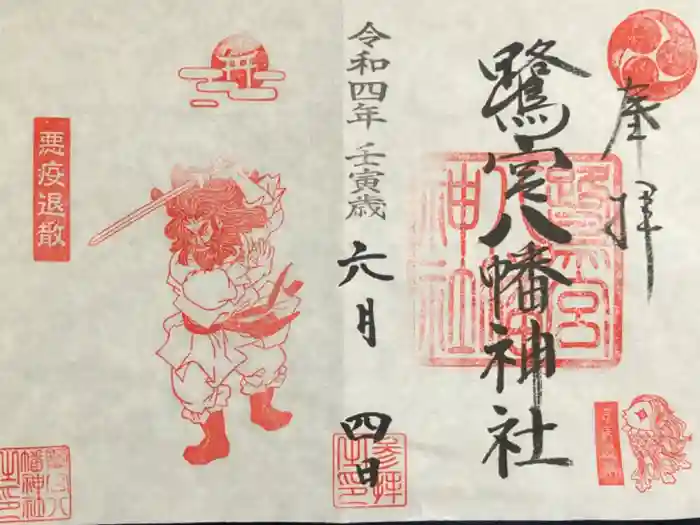 奉拝
鷺宮八幡神社
令和四年 壬寅歳 六月 四日
悪疫退散
鷺宮八幡神社
参拝之印